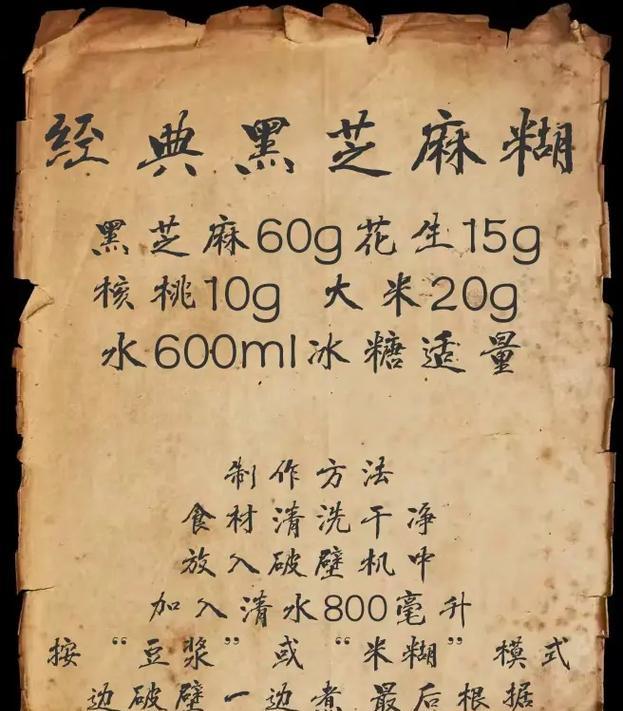 経典黑芝麻糊
黑芝麻60g花生15g
核桃10g 大米20g
水600ml冰糖适量
制作方法
食材清洗干净
放入破壁机中
加入清水800毫升
按“豆浆”或“米糊”模式
边破壁一边煮 最后根据